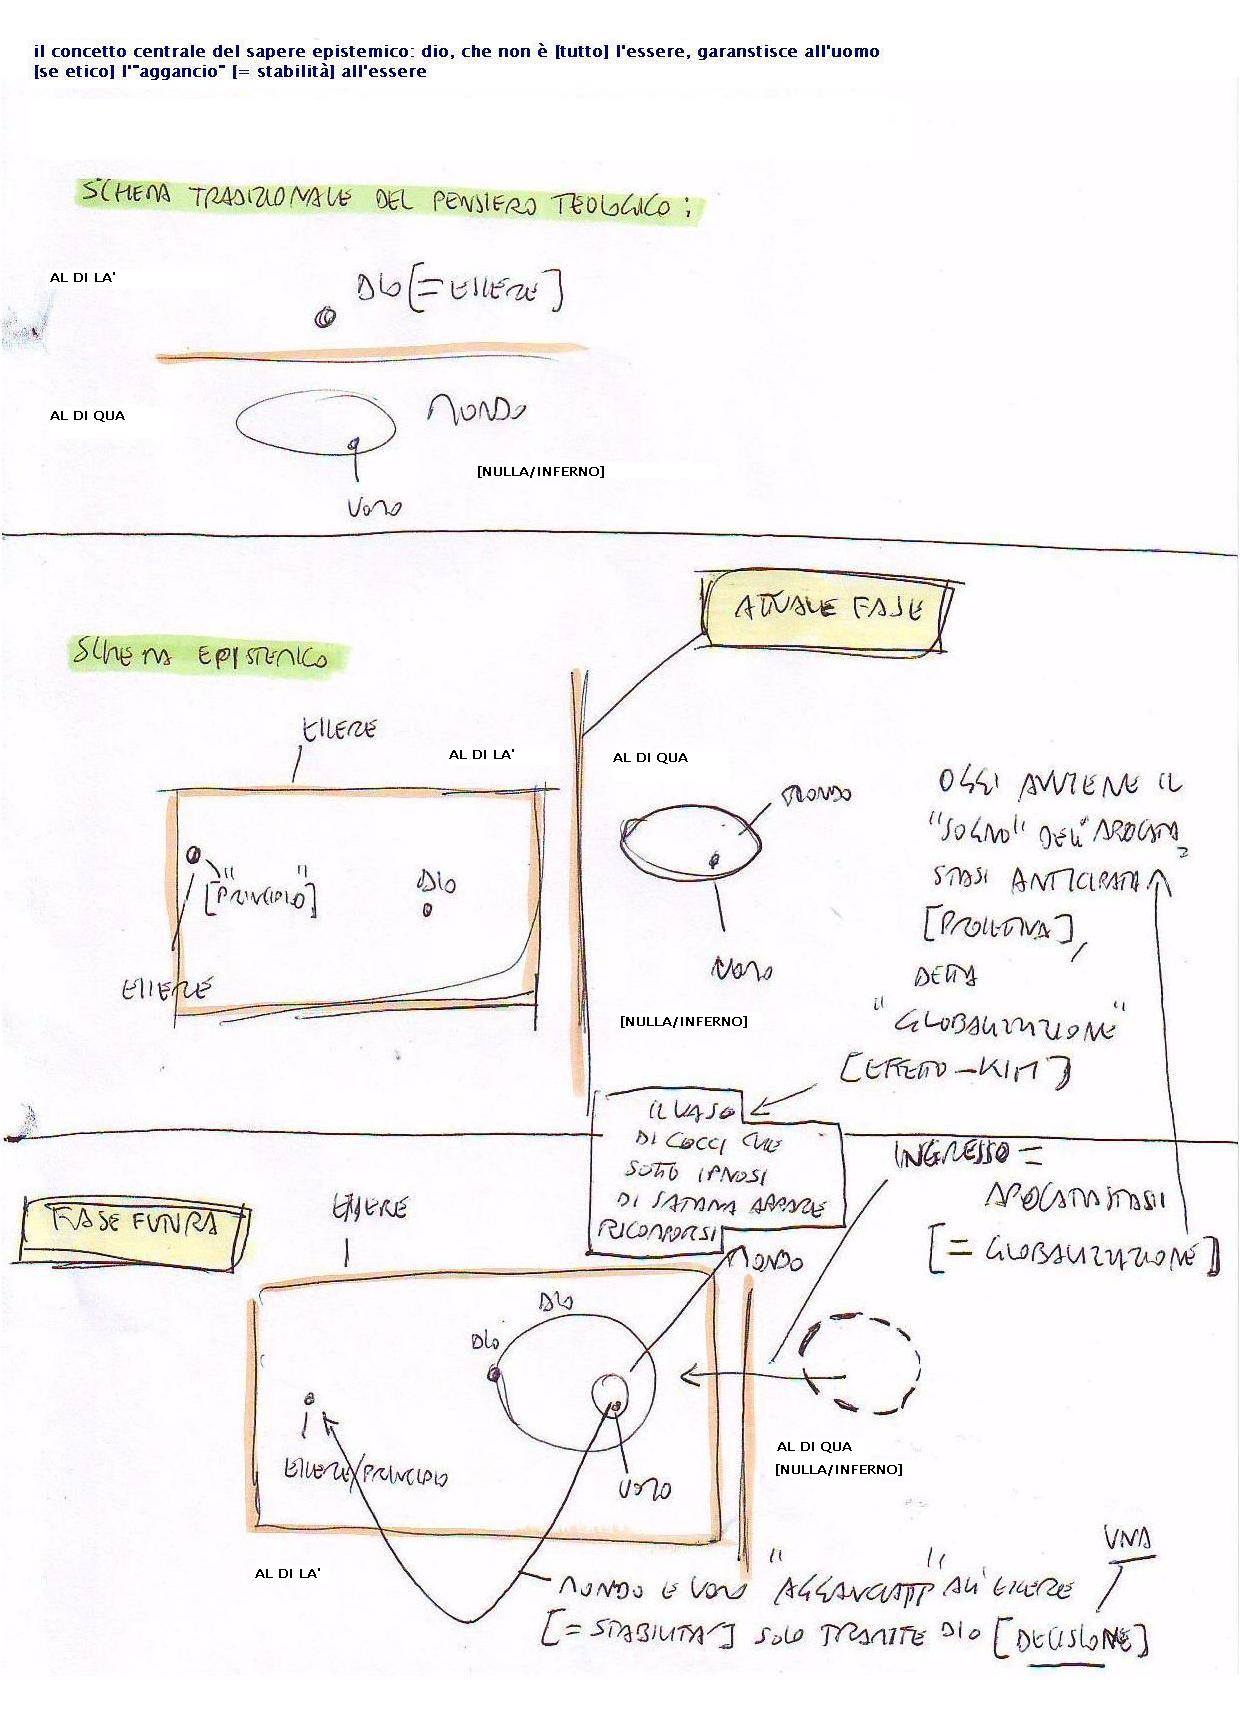 il concetto centrale del sapere epistemico: dio, che non è [tutto] l'essere, garanstisce all'uomo
[se etico] l'"aggancio" [= stabilità] all'essere
SCHEMA TRADIZIONALE DEL PENSIERO TEOLOGICO:
AL DI LA'
DIO [= ESSERE]
AL DI QUA
MONDO
[NULLA/INFERNO]
UOMO
ATTUALE FASE
SCHEMA EPISTEMICO
ESSERE
AL DI LA'
AL DI QUA
MONDO
"[PRINCIPIO]"
DIO
ESSERE
UOMO
[NULLA/INFERNO]
OGGI AVVIENE IL
"SOGNO" DELL'APOCATA
STASI ANTICIPATA
[PROLETTIVA],
DETTA
"GLOBALIZZAZIONE"
[EFFETTO-KIM]
IL VASO
DI COCCI CHE
SOTTO IPNOSI
DI SATANA APPARE
RICOMPORSI
INGRESSO =
APOCATASTASI
[= GLOBALIZZAZIONE]
FASE FUTURA
ESSERE
MONDO
DIO
DIO
ESSERE/PRINCIPIO
UOMO
AL DI QUA
[NULLA/INFERNO]
AL DI LA'
UNA
MONDO E UOMO "AGGANCIATI" ALL'ESSERE
[= STABILITA'] SOLO TRAMITE DIO [DECISIONE]